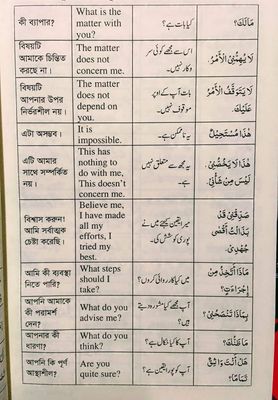 কী ব্যাপার?
What is the
matter with
you?
کیا بات ہے؟
مَالَكَ؟
বিষয়টি
আমাকে চিন্তিত
করছে না।
The matter
does not
concern me.
اس سے مجھے کوئی سر
وکار نہیں۔
لَا يُهِمُّنِيْ الْأَمْرُ۔
বিষয়টি
আপনার উপর
নির্ভরশীল নয়।
The matter
does not
depend on
you.
بات آپ کے اوپر
موقوف نہیں۔
لَا يَتَوَقَّفُ الْأَمْرُ
عَلَيْكَ۔
এটা অসম্ভব।
It is
impossible.
یہ ناممکن ہے۔
هٰذَا مُسْتَحِيْلٌ
এটি আমার
সাথে সম্পর্কিত
নয়।
This has
nothing to do
with me, This
doesn't
concern me.
یہ مجھ سے متعلق نہیں
ہے۔
هٰذَا لَا يَخُصُّنِيْ
لَيْسَ مِنْ شَأْنِيْ
বিশ্বাস করুন!
আমি সর্বাত্মক
চেষ্টা করেছি।
Believe me,
I have made
all my
efforts, I
tried my
best.
میرا یقین کیجئے میں نے
پوری کوشش کی۔
صَدِّقْنِيْ قَدْ
بَذَلْتُ أَقْصٰى
جُهْدِيْ۔
আমি কী ব্যবস্থা
নিতে পারি?
What steps
should I
take?
میں کیا کاروائی کروں؟
مَاذَا أَتَّخِذُ مِنْ
إِجْرَاءَاتٍ؟
আপনি আমাকে
কী পরামর্শ
দেন?
What do you
advise me?
آپ مجھے کیا مشورہ دیتے
ہیں؟
بِمَاذَا تَنْصَحُنِيْ؟
আপনার কী
ধারণা?
What do you
think?
آپ کا کیا خیال ہے؟
مَا ظَنُّكَ؟
আপনি কি পূর্ণ
আস্থাশীল?
Are you
quite sure?
کیا آپ کو پورا یقین ہے؟
هَلْ أَنْتَ وَاثِقٌ
تَمَامًا؟